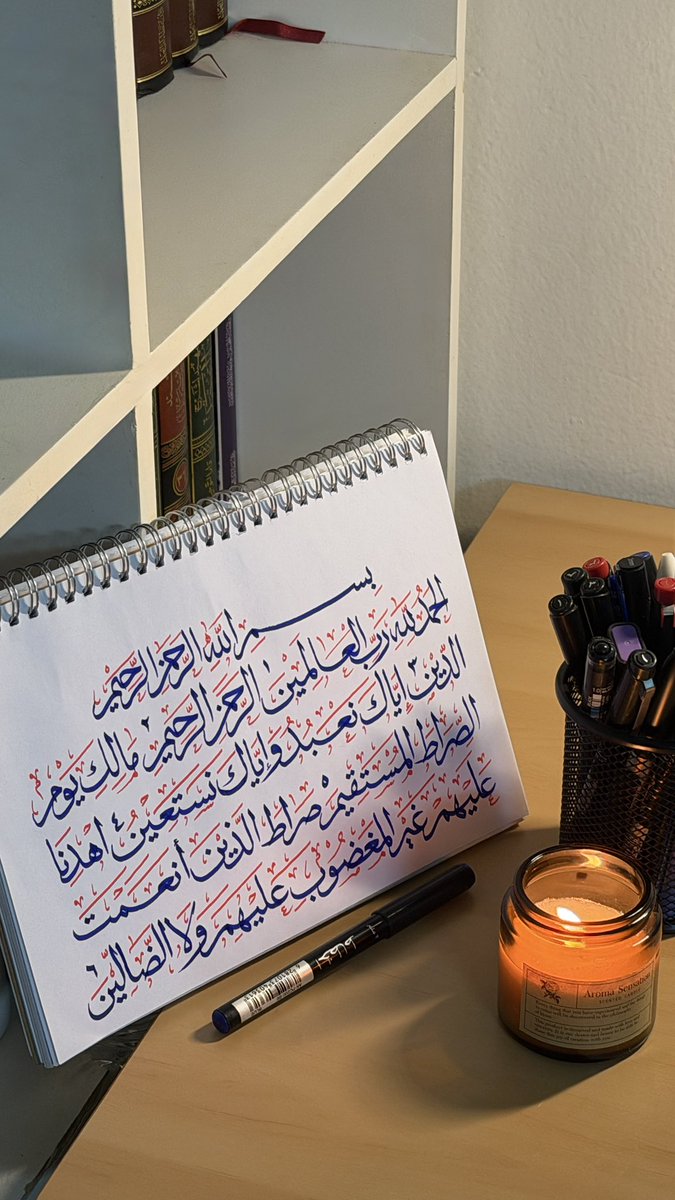 بسم الله الرحمن الرحيم
الحمد لله رب العالمين ١ الرحمن الرحيم ٢ مالك يوم
الدين ٣ إياك نعبد وإياك نستعين ٤ اهدنا
الصراط المستقيم ٥ صراط الذين أنعمت
عليهم غير المغضوب عليهم ولا الضالين ٦
خطاط
Aroma Sensation
SCENTED CANDLE